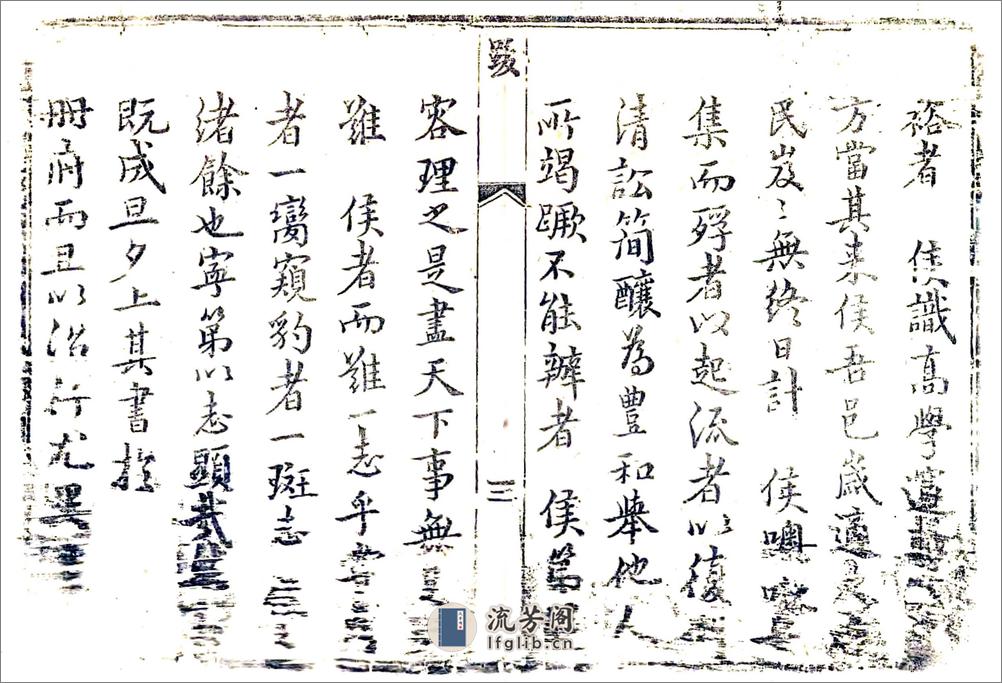 裕者 侯識高學
方當其來侯吾邑歲適
民岌〻無終日計 侯噢咻
集而殍者以起流者以復
清訟簡釀為豊和舉他人
所竭蹶不能辦者 侯
跋
三
容理之是盡天下事無
難 侯者而難一志乎
者一臠窺豹者一斑志
緒餘也寧第以志顯
既成旦夕上其書於
冊府而且以治行尤異
流芳阁
lfglib.cn